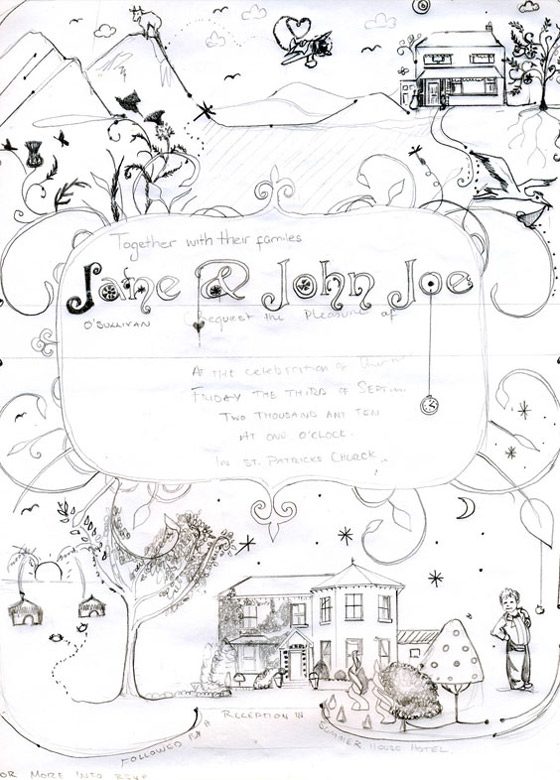 Together with their families
Jane & John Joe
O'Sullivan request the pleasure of
At the celebration of their
Friday the third of Sept
Two thousand ant ten
at one o'clock.
in St. Patricks Church.
Followed by a Reception in Summer House Hotel.
or more info RSVP